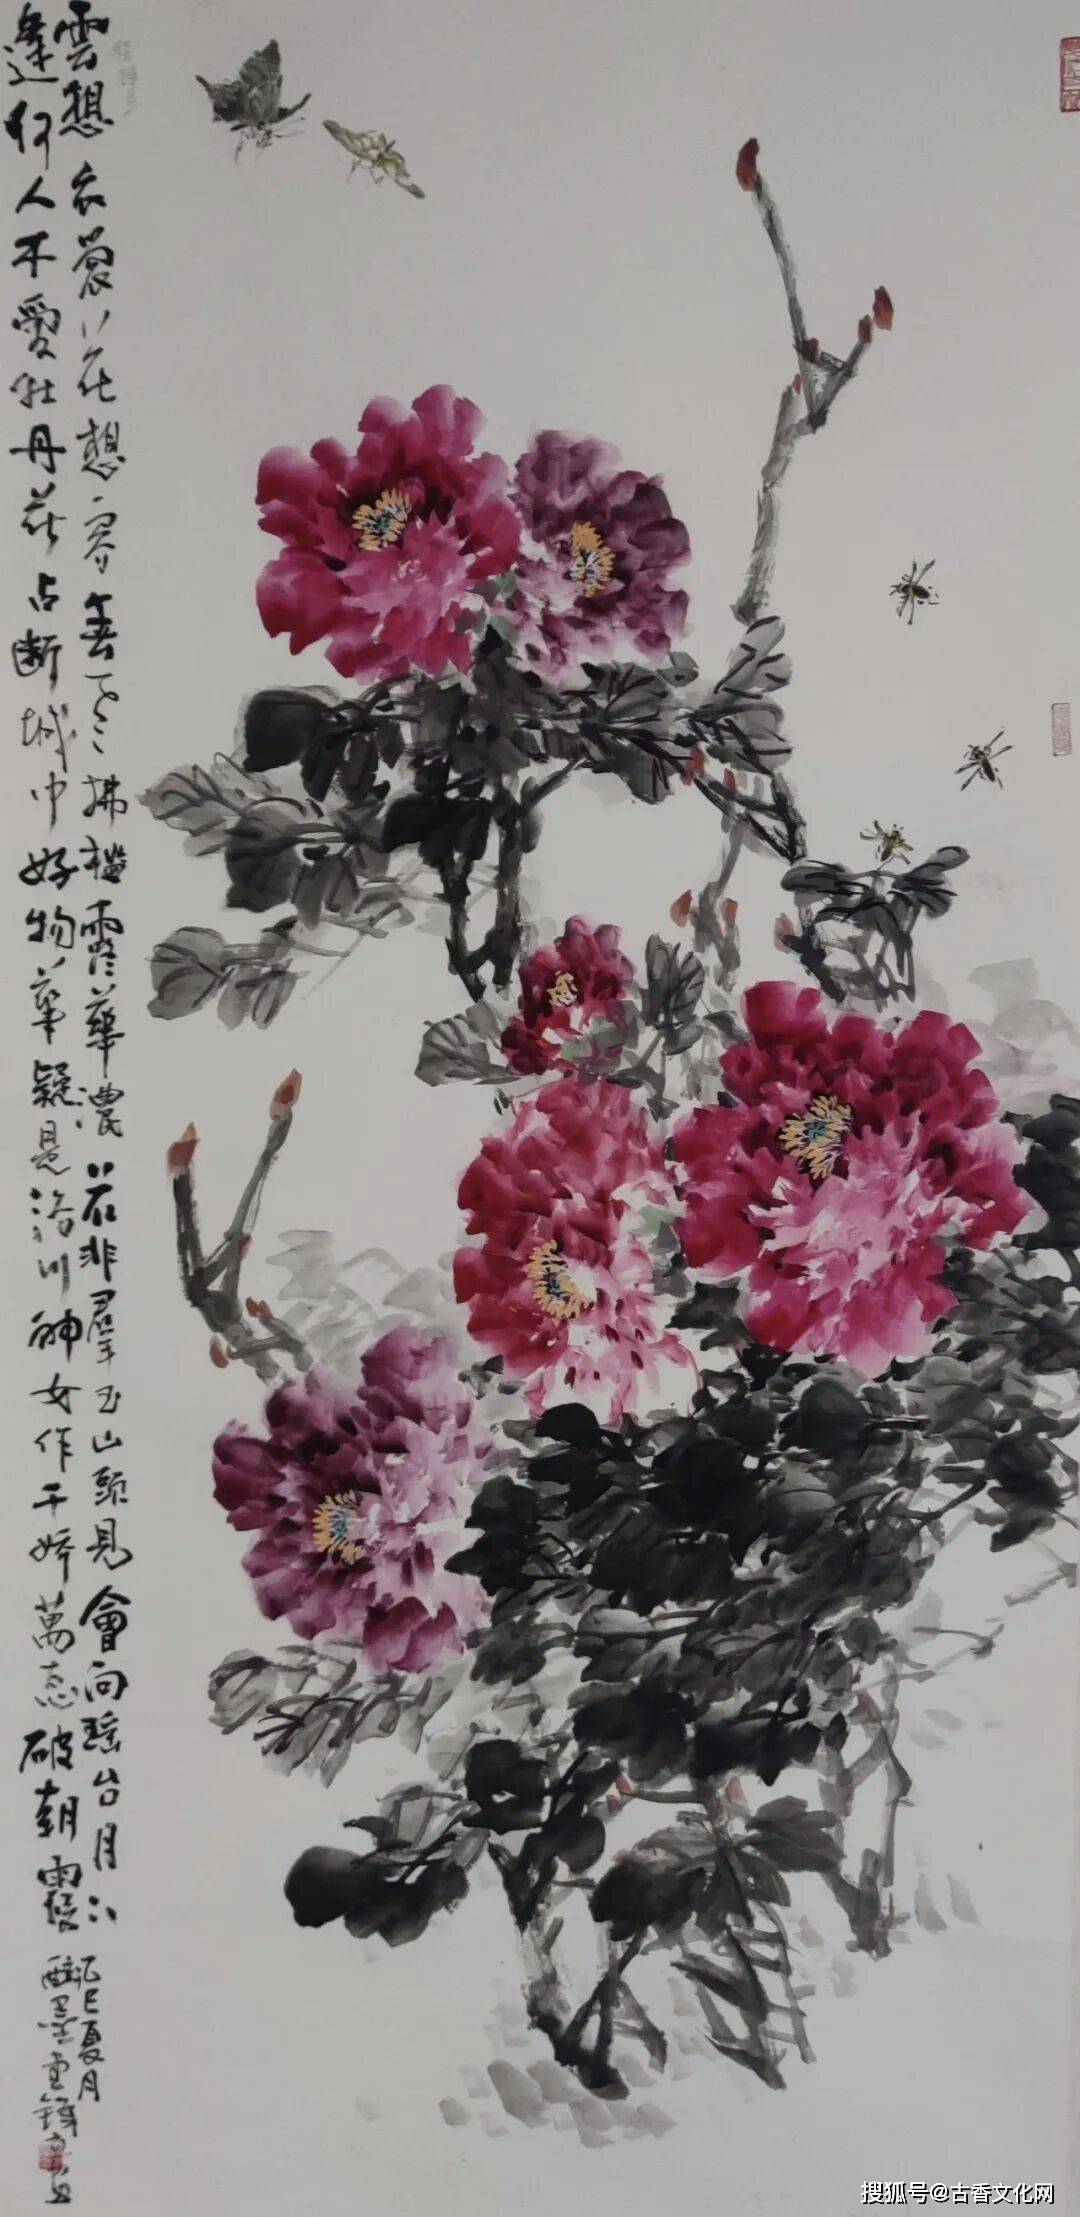 雲想衣裳花想容春風拂檻露華濃若非羣玉山頭見會向瑶台月下
逢何人不愛牡丹花占斷城中好物華疑是洛川神女作千嬌萬态破朝霞
乙巳夏月
醉墨
搜狐号@古香文化网